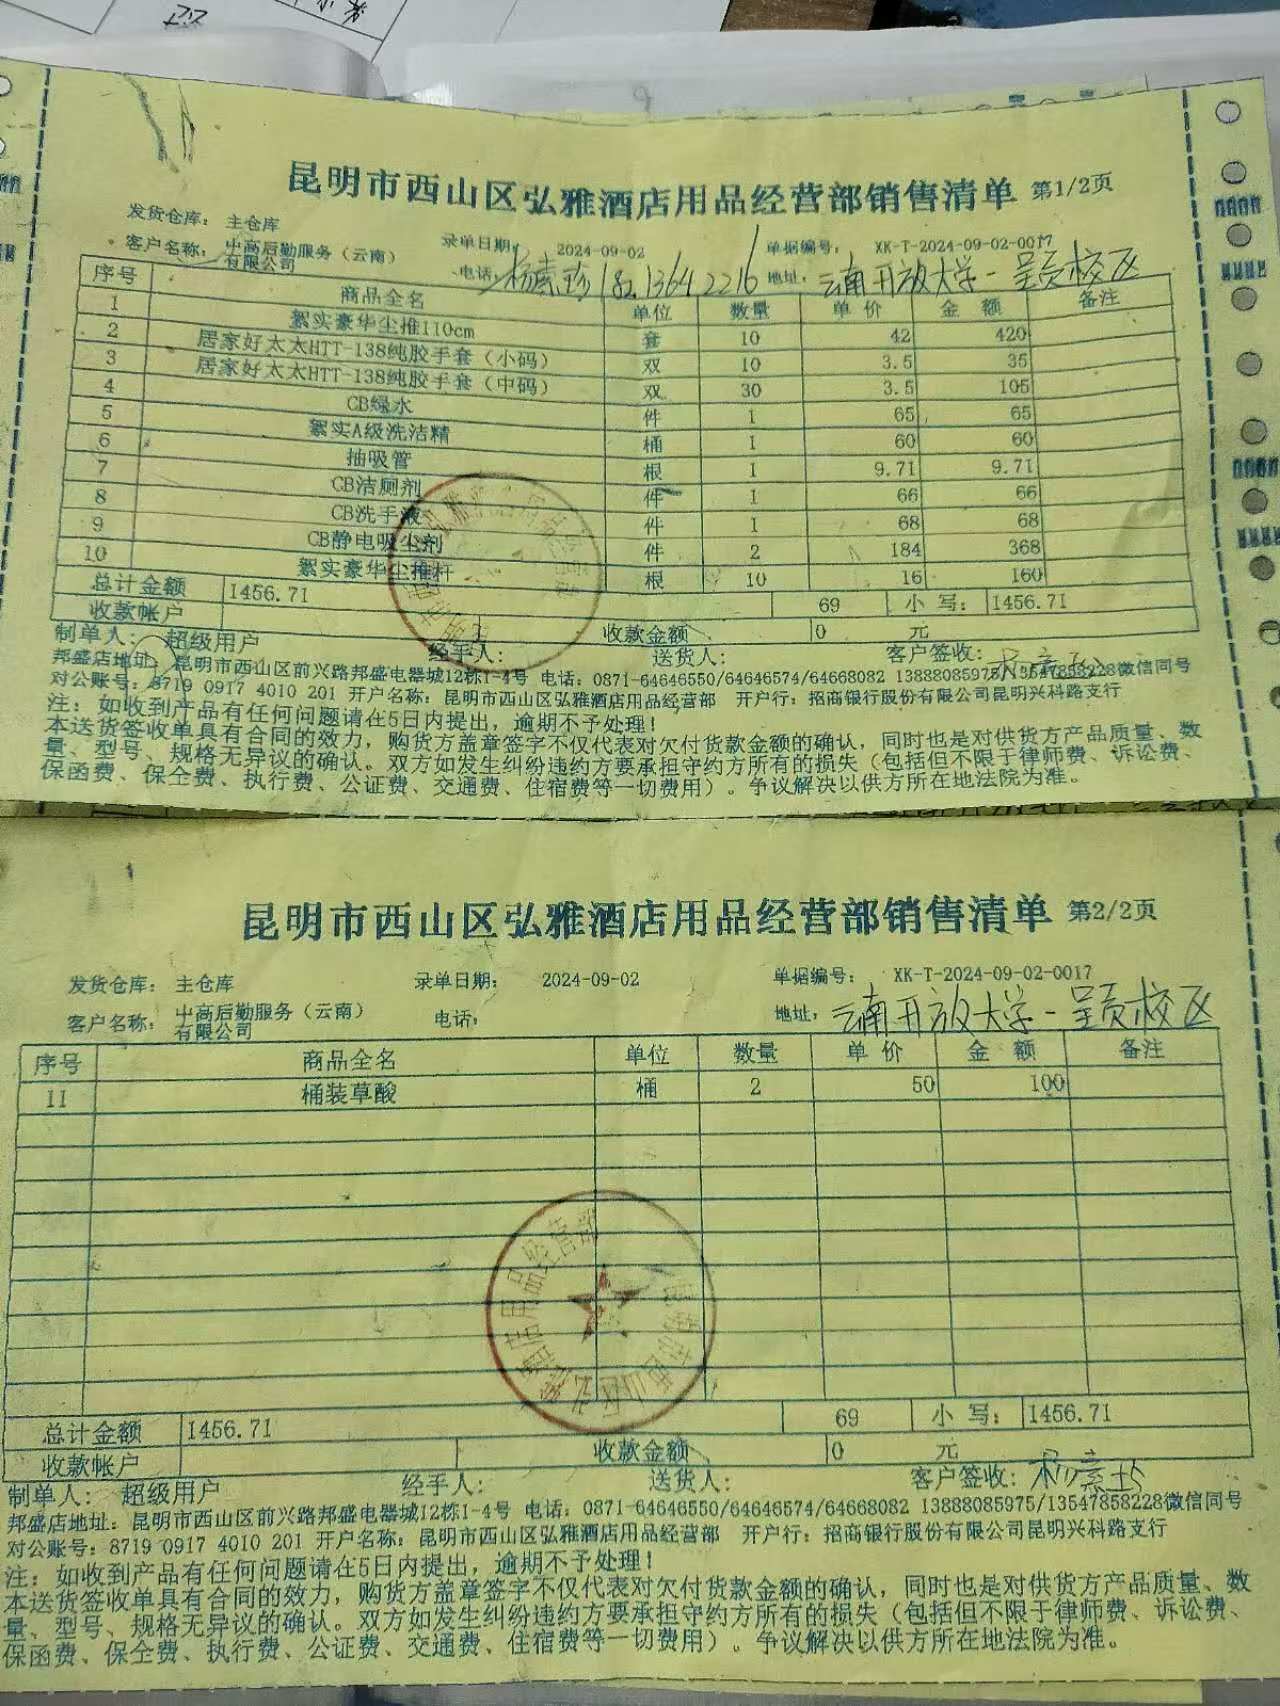 昆明市西山区弘雅酒店用品经营部销售清单 第1/2页
发货仓库: 主仓库 录单日期: 2024-09-02 单据编号: XK-T-2024-09-02-0017
客户名称: 中高后勤服务（云南）有限公司 电话: 杨素珍 18213642216 地址: 云南开放大学-吴贡校区
序号 商品全名 单位 数量 单价 金额 备注
1 絮实豪华尘推110cm 套 10 42 420
2 居家好太太HTT-138纯胶手套（小码） 双 10 3.5 35
3 居家好太太HTT-138纯胶手套（中码） 双 30 3.5 105
4 CB绿水 件 1 65 65
5 絮实A级洗洁精 桶 1 60 60
6 抽吸管 根 1 9.71 9.71
7 CB洁厕剂 件 1 66 66
8 CB洗手液 件 1 68 68
9 CB静电吸尘剂 件 2 184 368
10 絮实豪华尘推杆 根 10 16 160
总计金额 1456.71 69 小写: 1456.71
收款帐户 收款金额 0 元
制单人: 超级用户 经手人: 送货人: 客户签收:
邦盛店地址: 昆明市西山区前兴路邦盛电器城12栋1-4号 电话: 0871-64646550/64646574/64668082 13888085975/13547858228微信同号
对公账号: 8719 0917 4010 201 开户名称: 昆明市西山区弘雅酒店用品经营部 开户行: 招商银行股份有限公司昆明兴科路支行
注: 如收到产品有任何问题请在5日内提出，逾期不予处理!
本送货签收单具有合同的效力，购货方盖章签字不仅代表对欠付货款金额的确认，同时也是对供货方产品质量、数
量、型号、规格无异议的确认。双方如发生纠纷违约方要承担守约方所有的损失（包括但不限于律师费、诉讼费、
保函费、保全费、执行费、公证费、交通费、住宿费等一切费用）。争议解决以供方所在地法院为准。
昆明市西山区弘雅酒店用品经营部销售清单 第2/2页
发货仓库: 主仓库 录单日期: 2024-09-02 单据编号: XK-T-2024-09-02-0017
客户名称: 中高后勤服务（云南）有限公司 电话: 地址: 云南开放大学-吴贡校区
序号 商品全名 单位 数量 单价 金额 备注
11 桶装草酸 桶 2 50 100
昆明市西山区弘雅酒店用品经营部
总计金额 1456.71 69 小写: 1456.71
收款帐户 收款金额 0 元
制单人: 超级用户 经手人: 送货人: 客户签收: 杨素珍
邦盛店地址: 昆明市西山区前兴路邦盛电器城12栋1-4号 电话: 0871-64646550/64646574/64668082 13888085975/13547858228微信同号
对公账号: 8719 0917 4010 201 开户名称: 昆明市西山区弘雅酒店用品经营部 开户行: 招商银行股份有限公司昆明兴科路支行
注: 如收到产品有任何问题请在5日内提出，逾期不予处理!
本送货签收单具有合同的效力，购货方盖章签字不仅代表对欠付货款金额的确认，同时也是对供货方产品质量、数
量、型号、规格无异议的确认。双方如发生纠纷违约方要承担守约方所有的损失（包括但不限于律师费、诉讼费、
保函费、保全费、执行费、公证费、交通费、住宿费等一切费用）。争议解决以供方所在地法院为准。